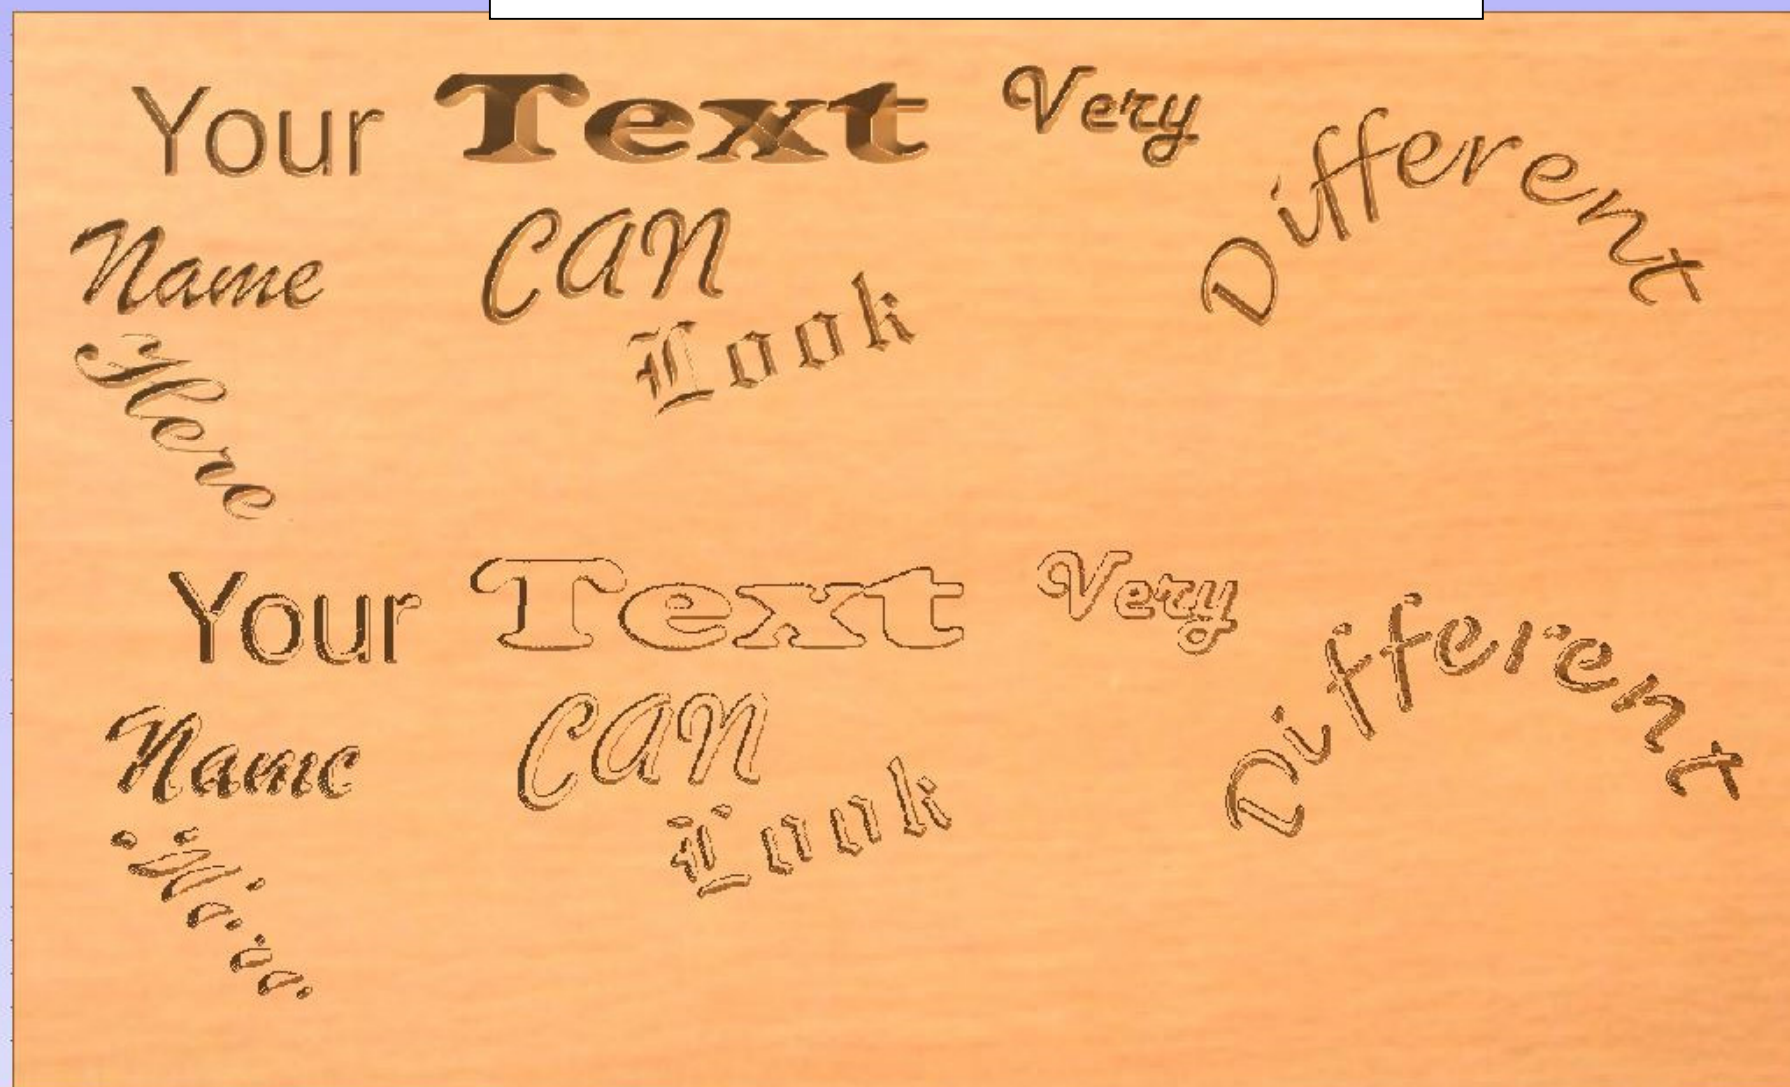 Your Text Very Different
Name CAN
Look
Here
Your Text Very Different
Name CAN
Look
Here